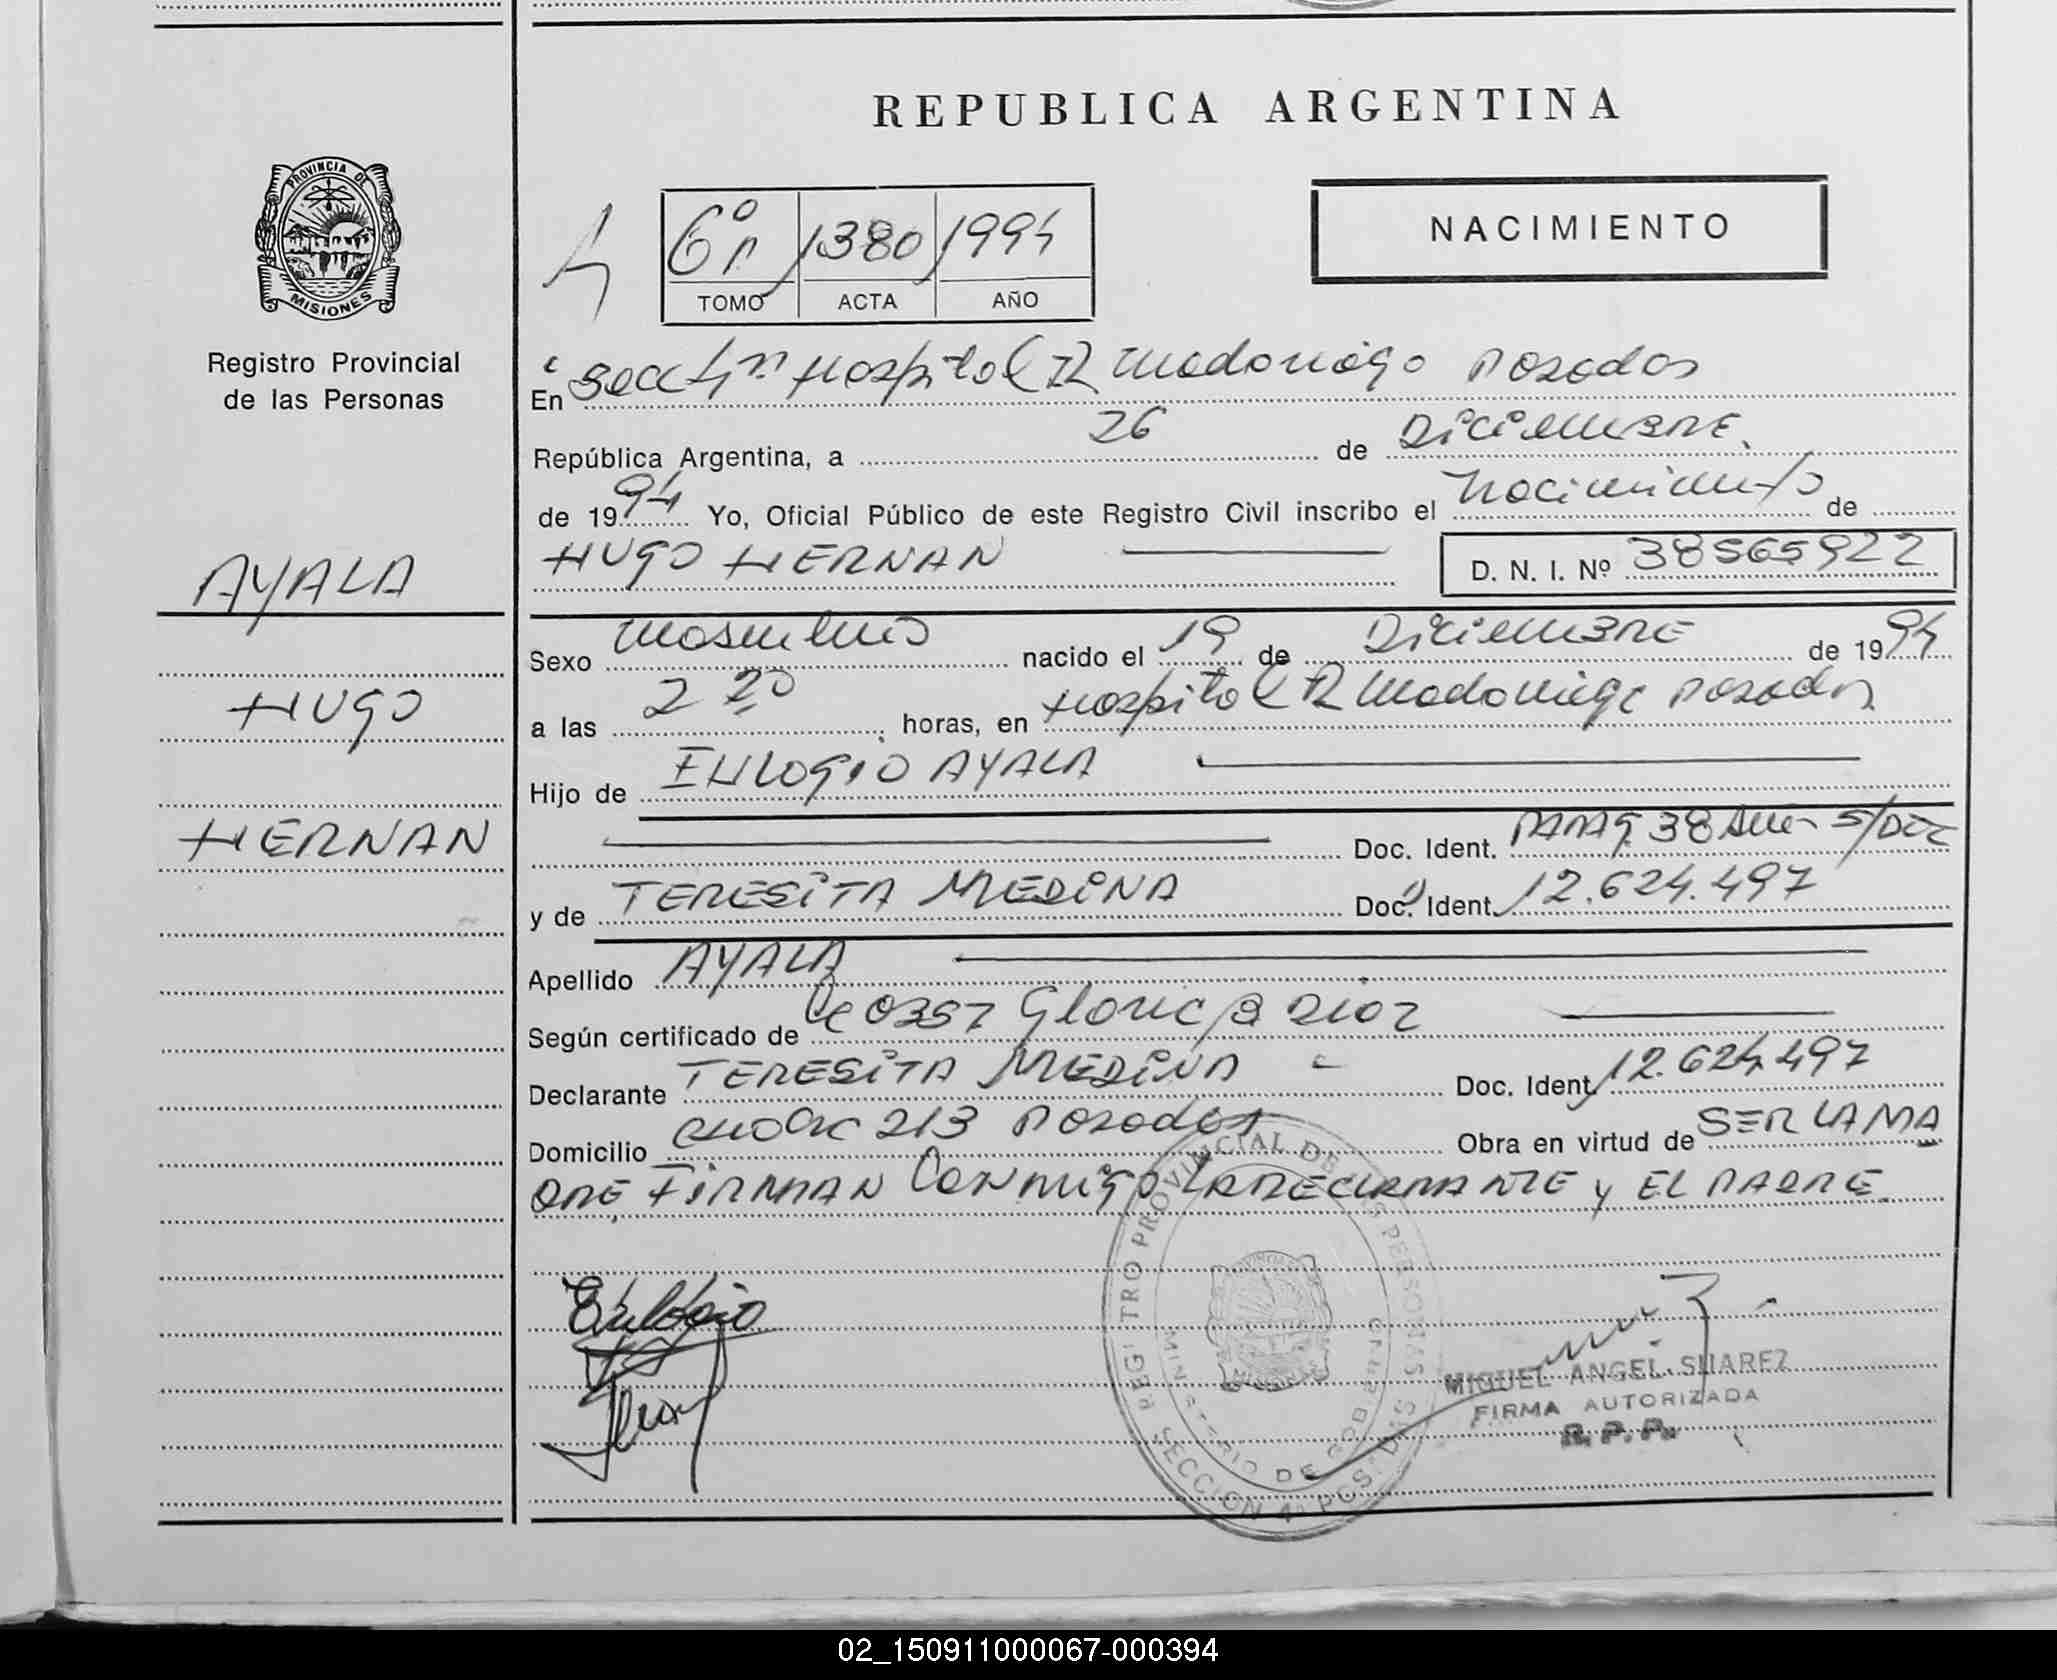 REPUBLICA ARGENTINA
PROVINCIA DE
MISIONES
Registro Provincial
de las Personas
6º 1380 1994
TOMO ACTA AÑO
NACIMIENTO
En Secc 4ª Hospital R Madariaga Posadas
República Argentina, a 26 de DiCiEMBRE.
de 1994 Yo, Oficial Público de este Registro Civil inscribo el Nacimiento de
HUGO HERNAN D. N. I. Nº 38565922
AYALA
HUGO
HERNAN
Sexo Masculino nacido el 19 de DiCiEMBRE de 1994
a las 2 20 horas, en Hospital R Madariaga Posadas
Hijo de EULOGIO AYALA
Doc. Ident. PARAG. 38 S/DOC
y de TERESiTA MEDiNA Doc. Ident. 12.624.497
Apellido AYALA
Según certificado de Gloria B Diaz
Declarante TERESiTA MEDiNA Doc. Ident. 12.624.497
Domicilio 213 Posadas Obra en virtud de SER LA MA
DRE, FiRMAN CONMIGO LA DECLARANTE y EL PADRE.
Eulogio
REGISTRO PROVINCIAL DE LAS PERSONAS
MINISTERIO DE GOBIERNO
SECCION 4ª POSADAS
MIGUEL ANGEL SUAREZ
FIRMA AUTORIZADA
R. P. P.
02_150911000067-000394